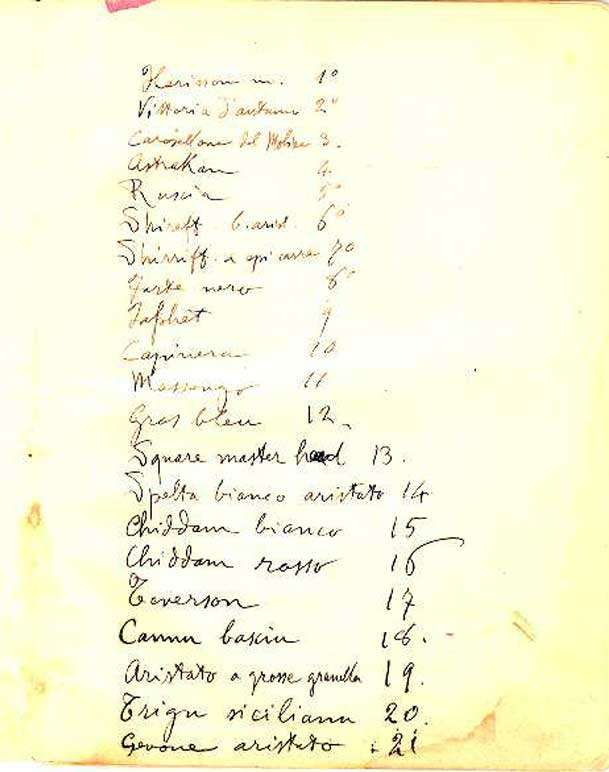 Herisson m. 1°
Vittoria d'autunno 2°
Carosellone del Molise 3.
Astrakan 4.
Ruscia 5°
Shireff b. arist. 6°
Shirriff a epi carré 7°
nero 8°
9
Capinera 10
Massongo 11
Gros bleu 12.
Square master head 13.
Spelta bianco aristato 14
Chiddam bianco 15
Chiddam rosso 16
Teverson 17
18.
Aristato a grosse granella 19.
Trigu sicilianu 20.
aristato 21